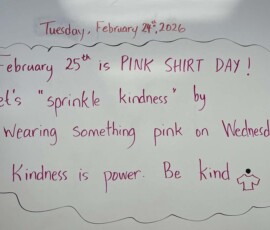 Tuesday, February 24th, 2026
February 25th is PINK SHIRT DAY!
et's "sprinkle kindness" by
Wearing something pink on Wednesd
Kindness is power. Be kind